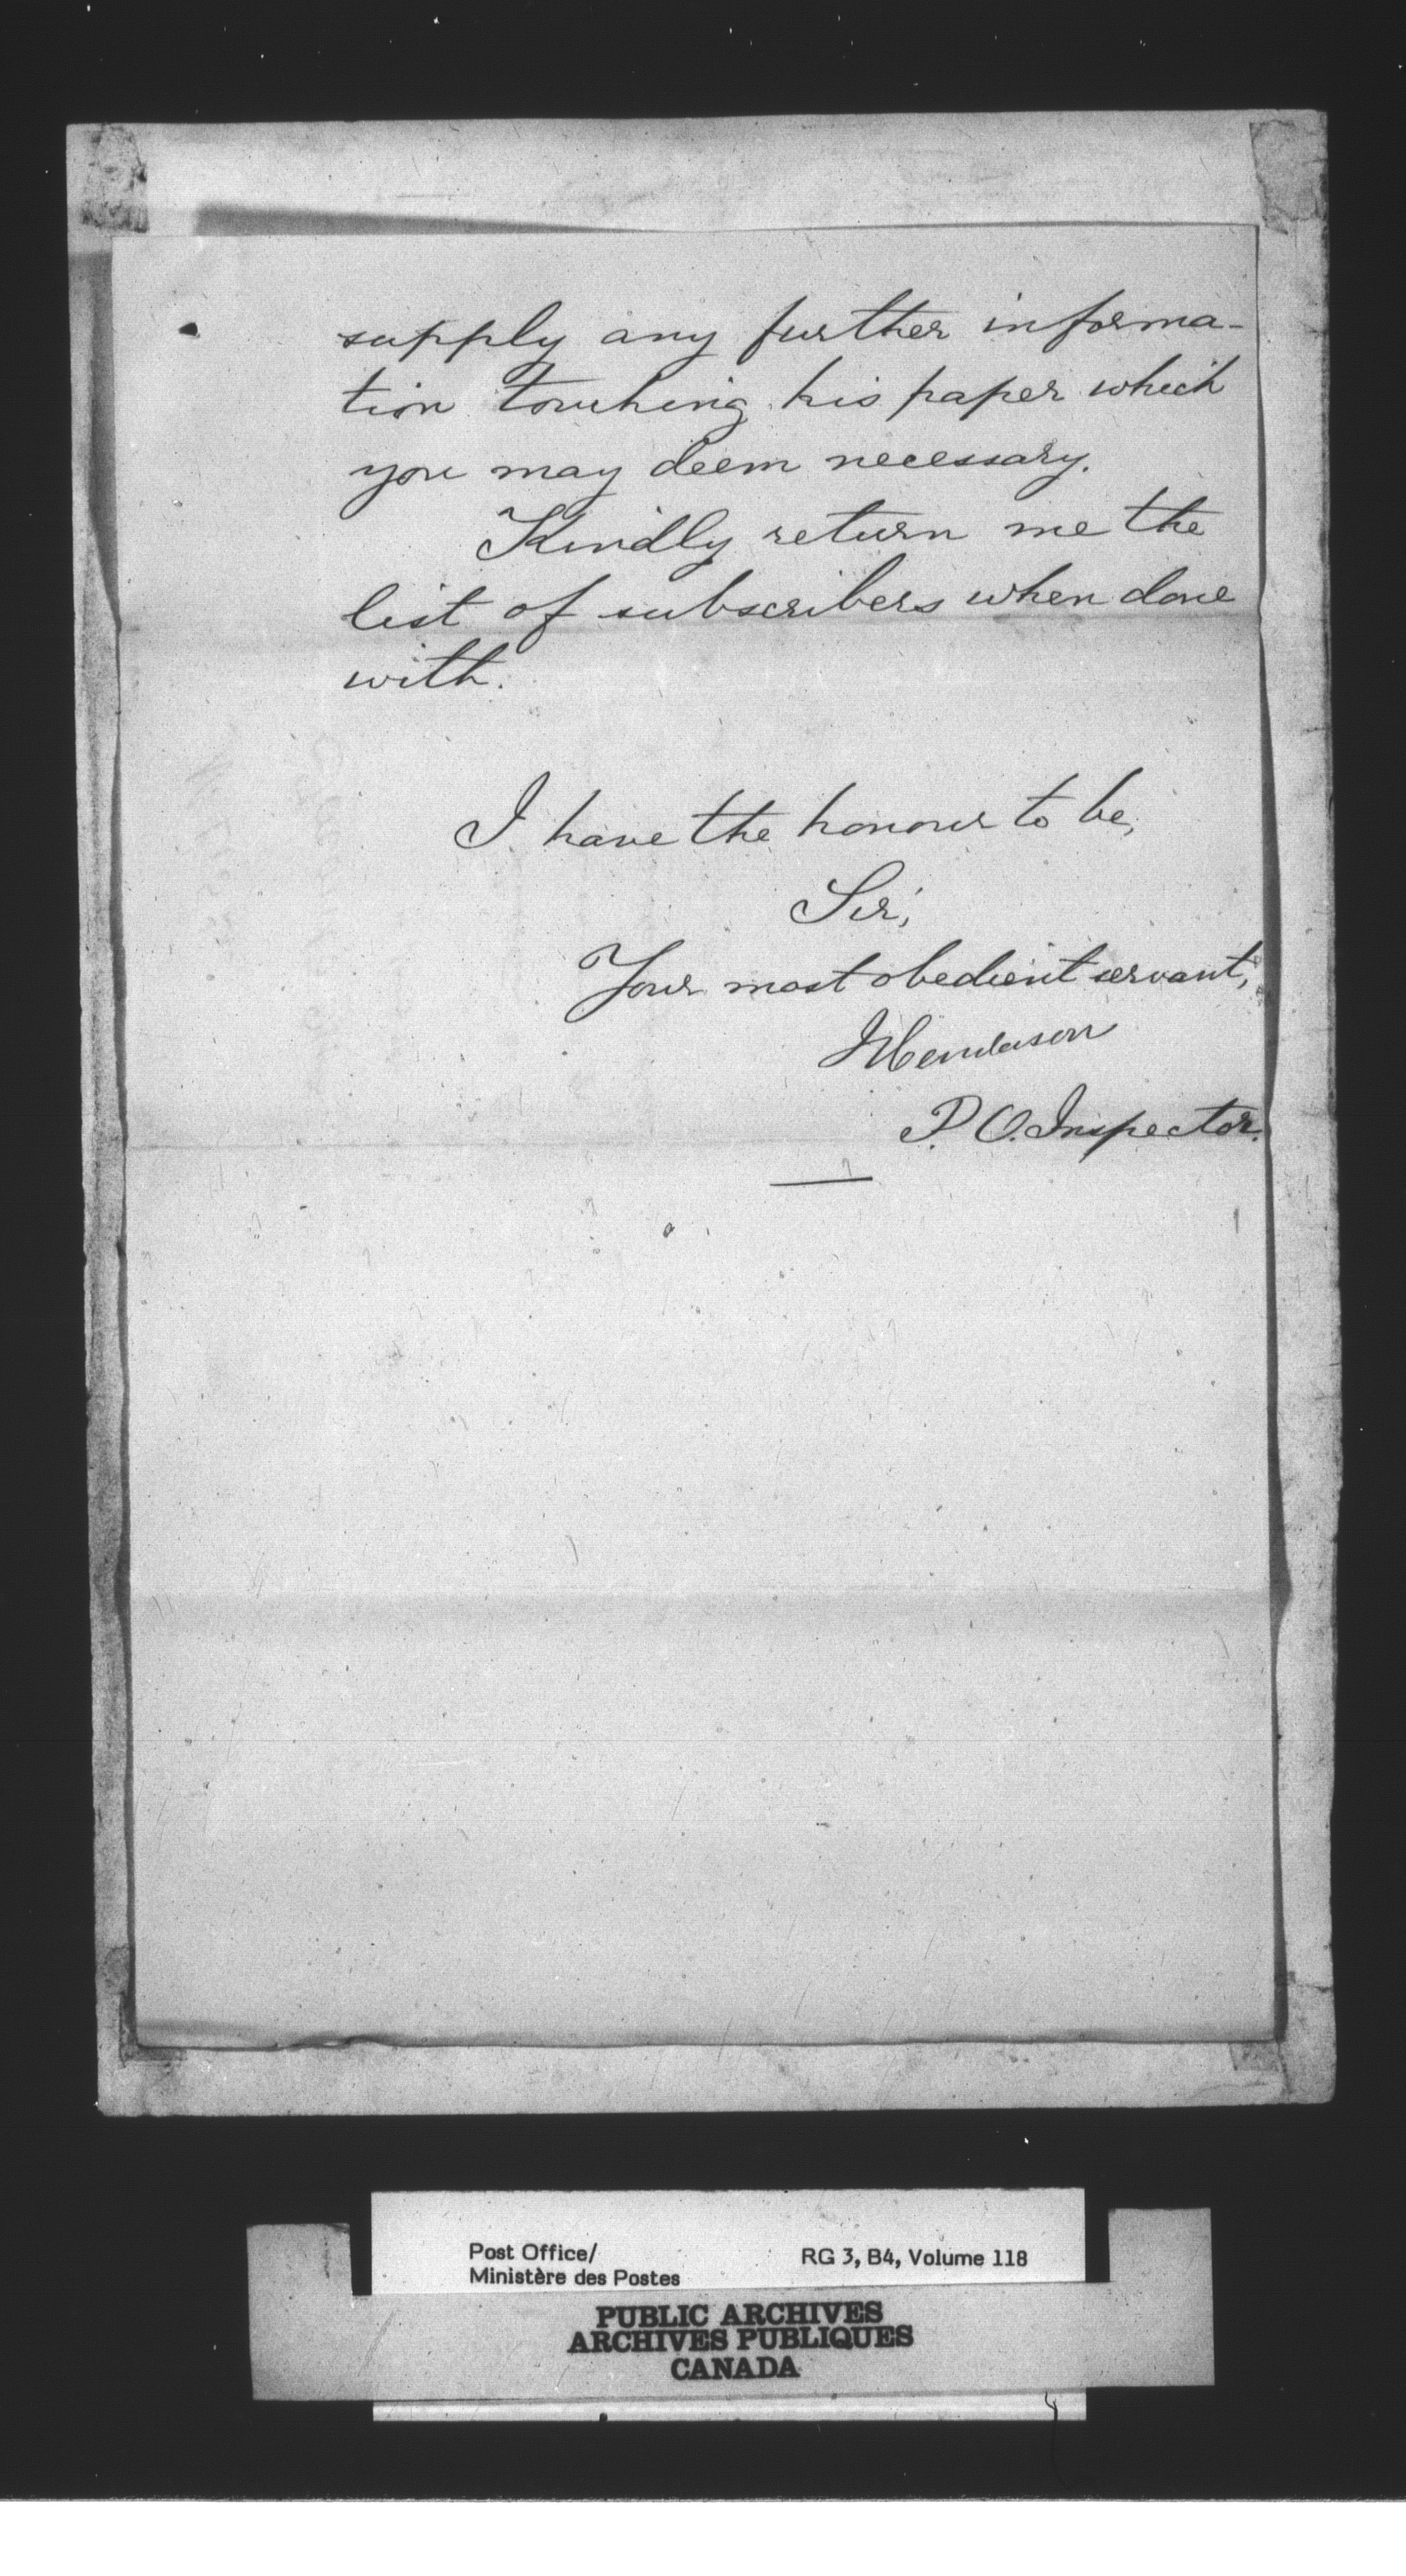 supply any further informa-
tion touching his paper which
you may deem necessary.
Kindly return me the
list of subscribers when done
with.
I have the honour to be,
Sir,
Your most obedient servant,
P. O. Inspector.
Post Office/
Ministère des Postes
RG 3, B4, Volume 118
PUBLIC ARCHIVES
ARCHIVES PUBLIQUES
CANADA